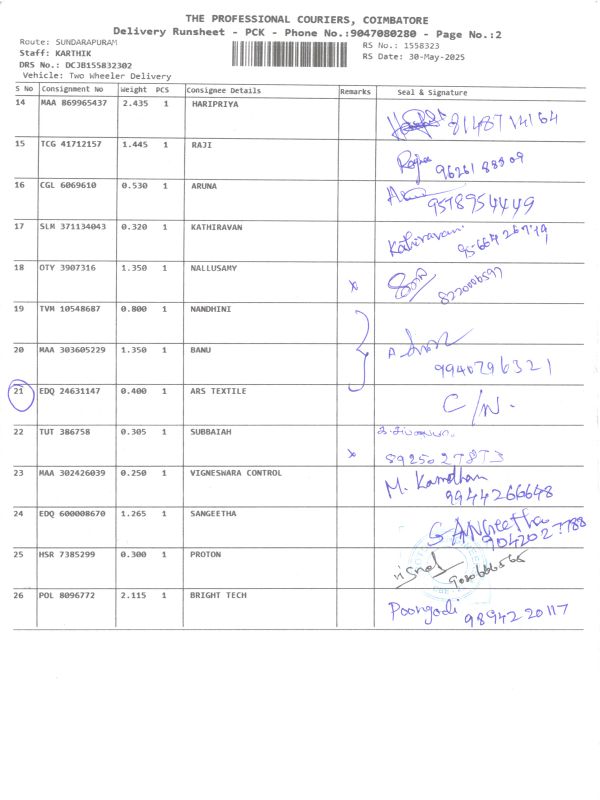 THE PROFESSIONAL COURIERS, COIMBATORE
Delivery Runsheet - PCK - Phone No.:9047080280 - Page No.:2
Route: SUNDARAPURAM
RS No.: 1558323
Staff: KARTHIK
RS Date: 30-May-2025
DRS No.: DCJB155832302
Vehicle: Two Wheeler Delivery
S No Consignment No Weight PCS Consignee Details Remarks Seal & Signature
14 MAA 869965437 2.435 1 HARIPRIYA
8148714164
15 TCG 41712157 1.445 1 RAJI
16 CGL 6069610 0.530 1 ARUNA
9578954449
17 SLM 371134043 0.320 1 KATHIRAVAN
Kathiravan
18 OTY 3907316 1.350 1 NALLUSAMY
x
19 TVM 10548687 0.800 1 NANDHINI
20 MAA 303605229 1.350 1 BANU
9940796321
21 EDQ 24631147 0.400 1 ARS TEXTILE
C/N.
22 TUT 386758 0.305 1 SUBBAIAH
x 8925027873
23 MAA 302426039 0.250 1 VIGNESWARA CONTROL
M. Kamdhan
9944266648
24 EDQ 600008670 1.265 1 SANGEETHA
SANGeetha
9042027788
25 HSR 7385299 0.300 1 PROTON
26 POL 8096772 2.115 1 BRIGHT TECH
Poongodi 9894220117